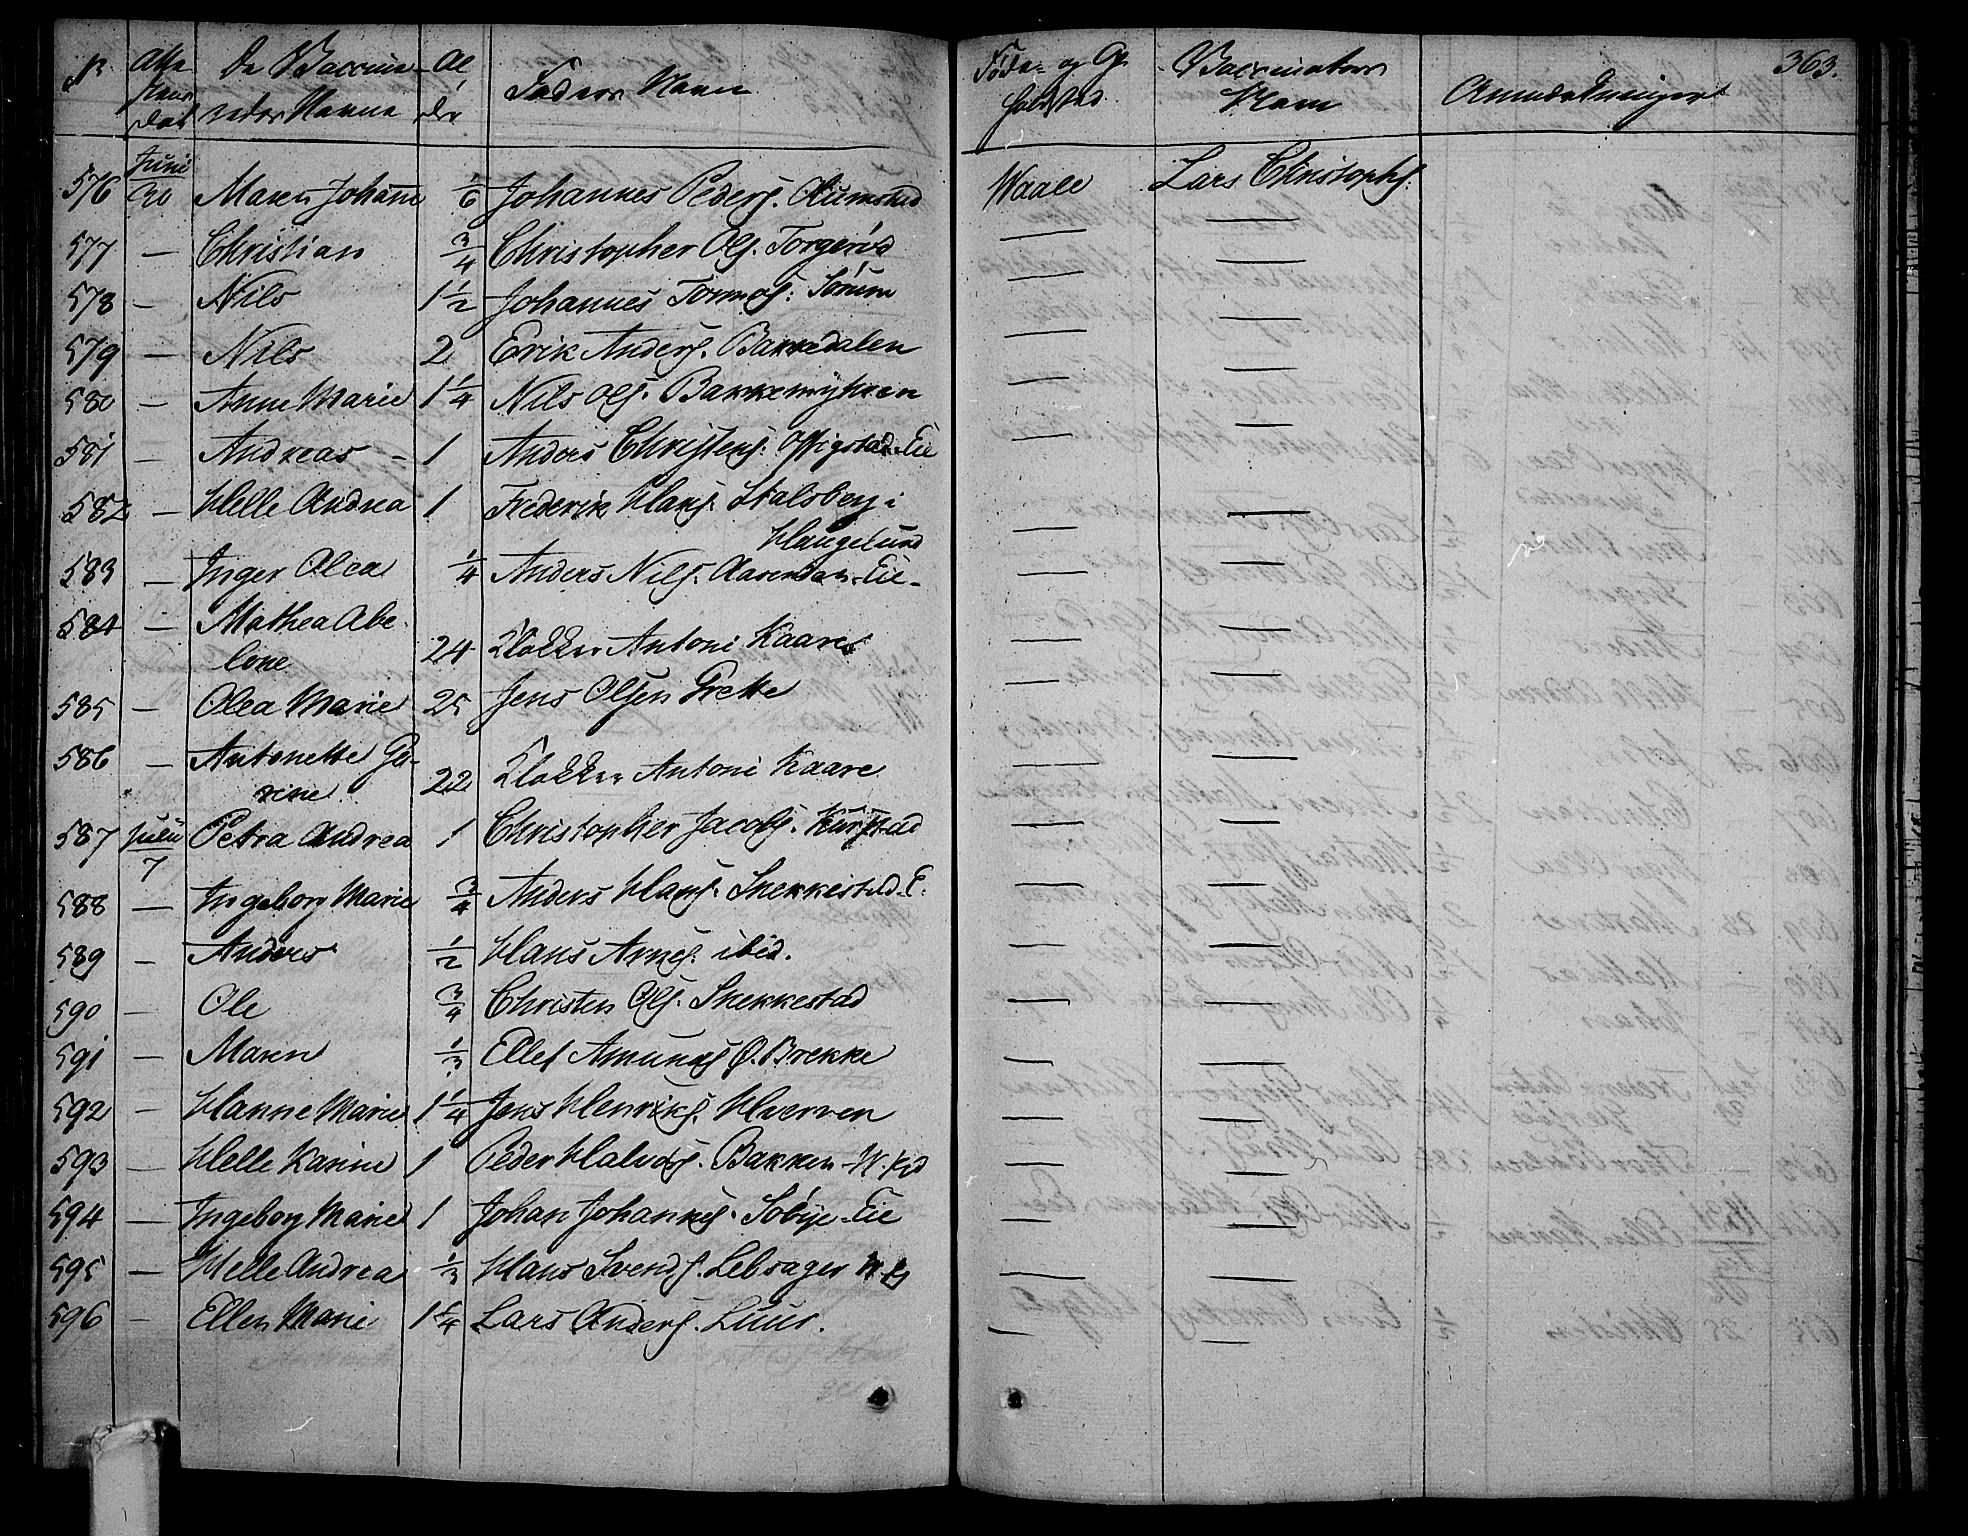 363.
N Atte stens Dat De Vaccine- redes Navne Al der Faders Navn Føde- og Op holds Vaccinators Navn Anmærkninger
Juni
576 30 Maren Johanne 1/6 Johannes Peders. Aumstad Waale Lars Christophs:
577 — Christian 3/4 Christopher Ols. Torgerød — —
578 — Nils 1 1/2 Johannes Tormos: Sørum — —
579 — Nils 2 Erik Anders. Bakkedalen — —
580 — Anne Marie 1 1/4 Nils Ols. Bakkemyhren — —
581 — Andreas - 1 Anders Christens: Offigstad-Eie — —
582 — Helle Andrea 1 Frederik Hans. Stalsberg i — —
Haugelund
583 — Inger Olea 1/4 Anders Nils. Aarendan-Eie- — —
584 — Mathea Abe-
lone 24 Klokker Antoni Kaare — —
585 — Olea Marie 25 Jens Olsen Grette — —
586 — Antonette Ge-
rine 22 Klokker Antoni Kaare — —
587 Julii 7 Petra Andrea 1 Christopher Jacobs. — —
588 — Ingeborg Marie 3/4 Anders Hans. Snekkestad-E: — —
589 — Anders 1/2 Hans Arnes. ibid. — —
590 — Ole 3/4 Christen Ols. Snekkestad — —
591 — Maren 1/3 Ellef Amunds Ø. Brekke — —
592 — Hanne Marie 1 1/4 Jens Henriks. Hverven — —
593 — Helle Karine 1 Peder Halvors. Bakken — —
594 — Ingeborg Marie 1 Johan Johannes. Søbye-Eie — —
595 — Helle Andrea 1/3 Hans Svends. Lebsager — —
596 — Ellen Marie 1 1/4 Lars Anders. Luur. — —